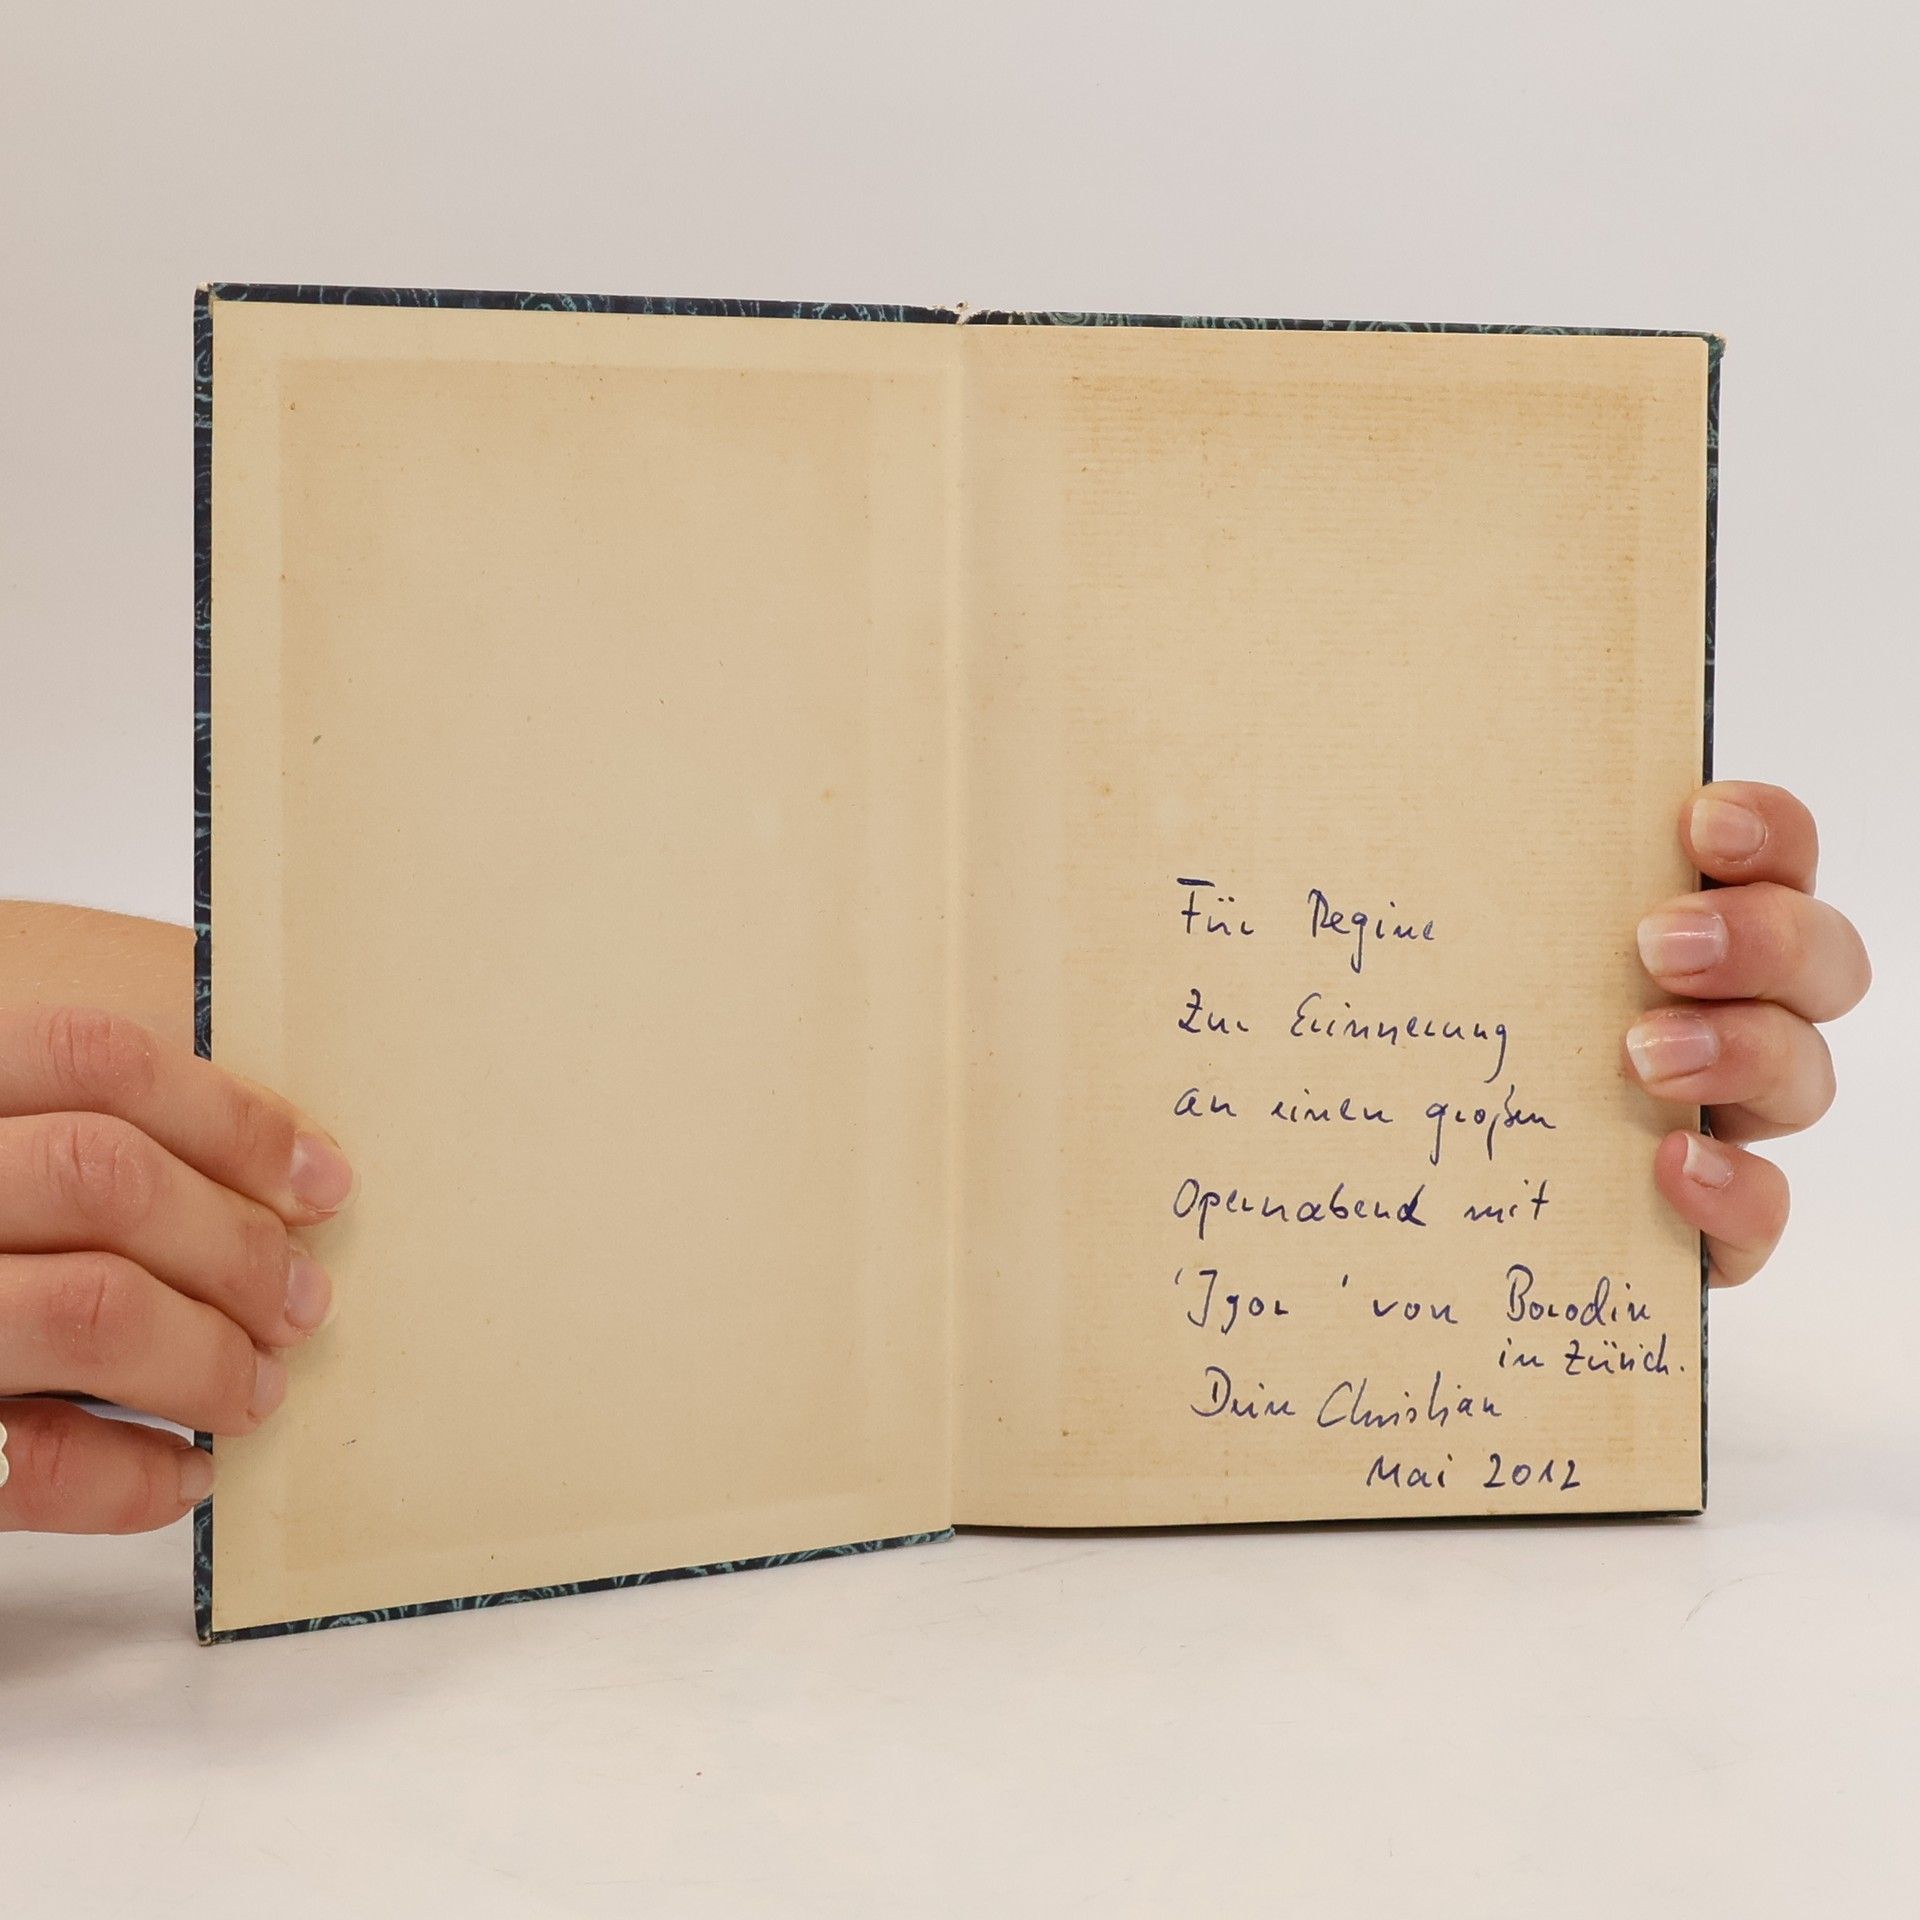 Für Regine
Zur Erinnerung
an einen großen
Opernabend mit
'Igor ' von Borodin
in Zürich.
Dein Christian
Mai 2012